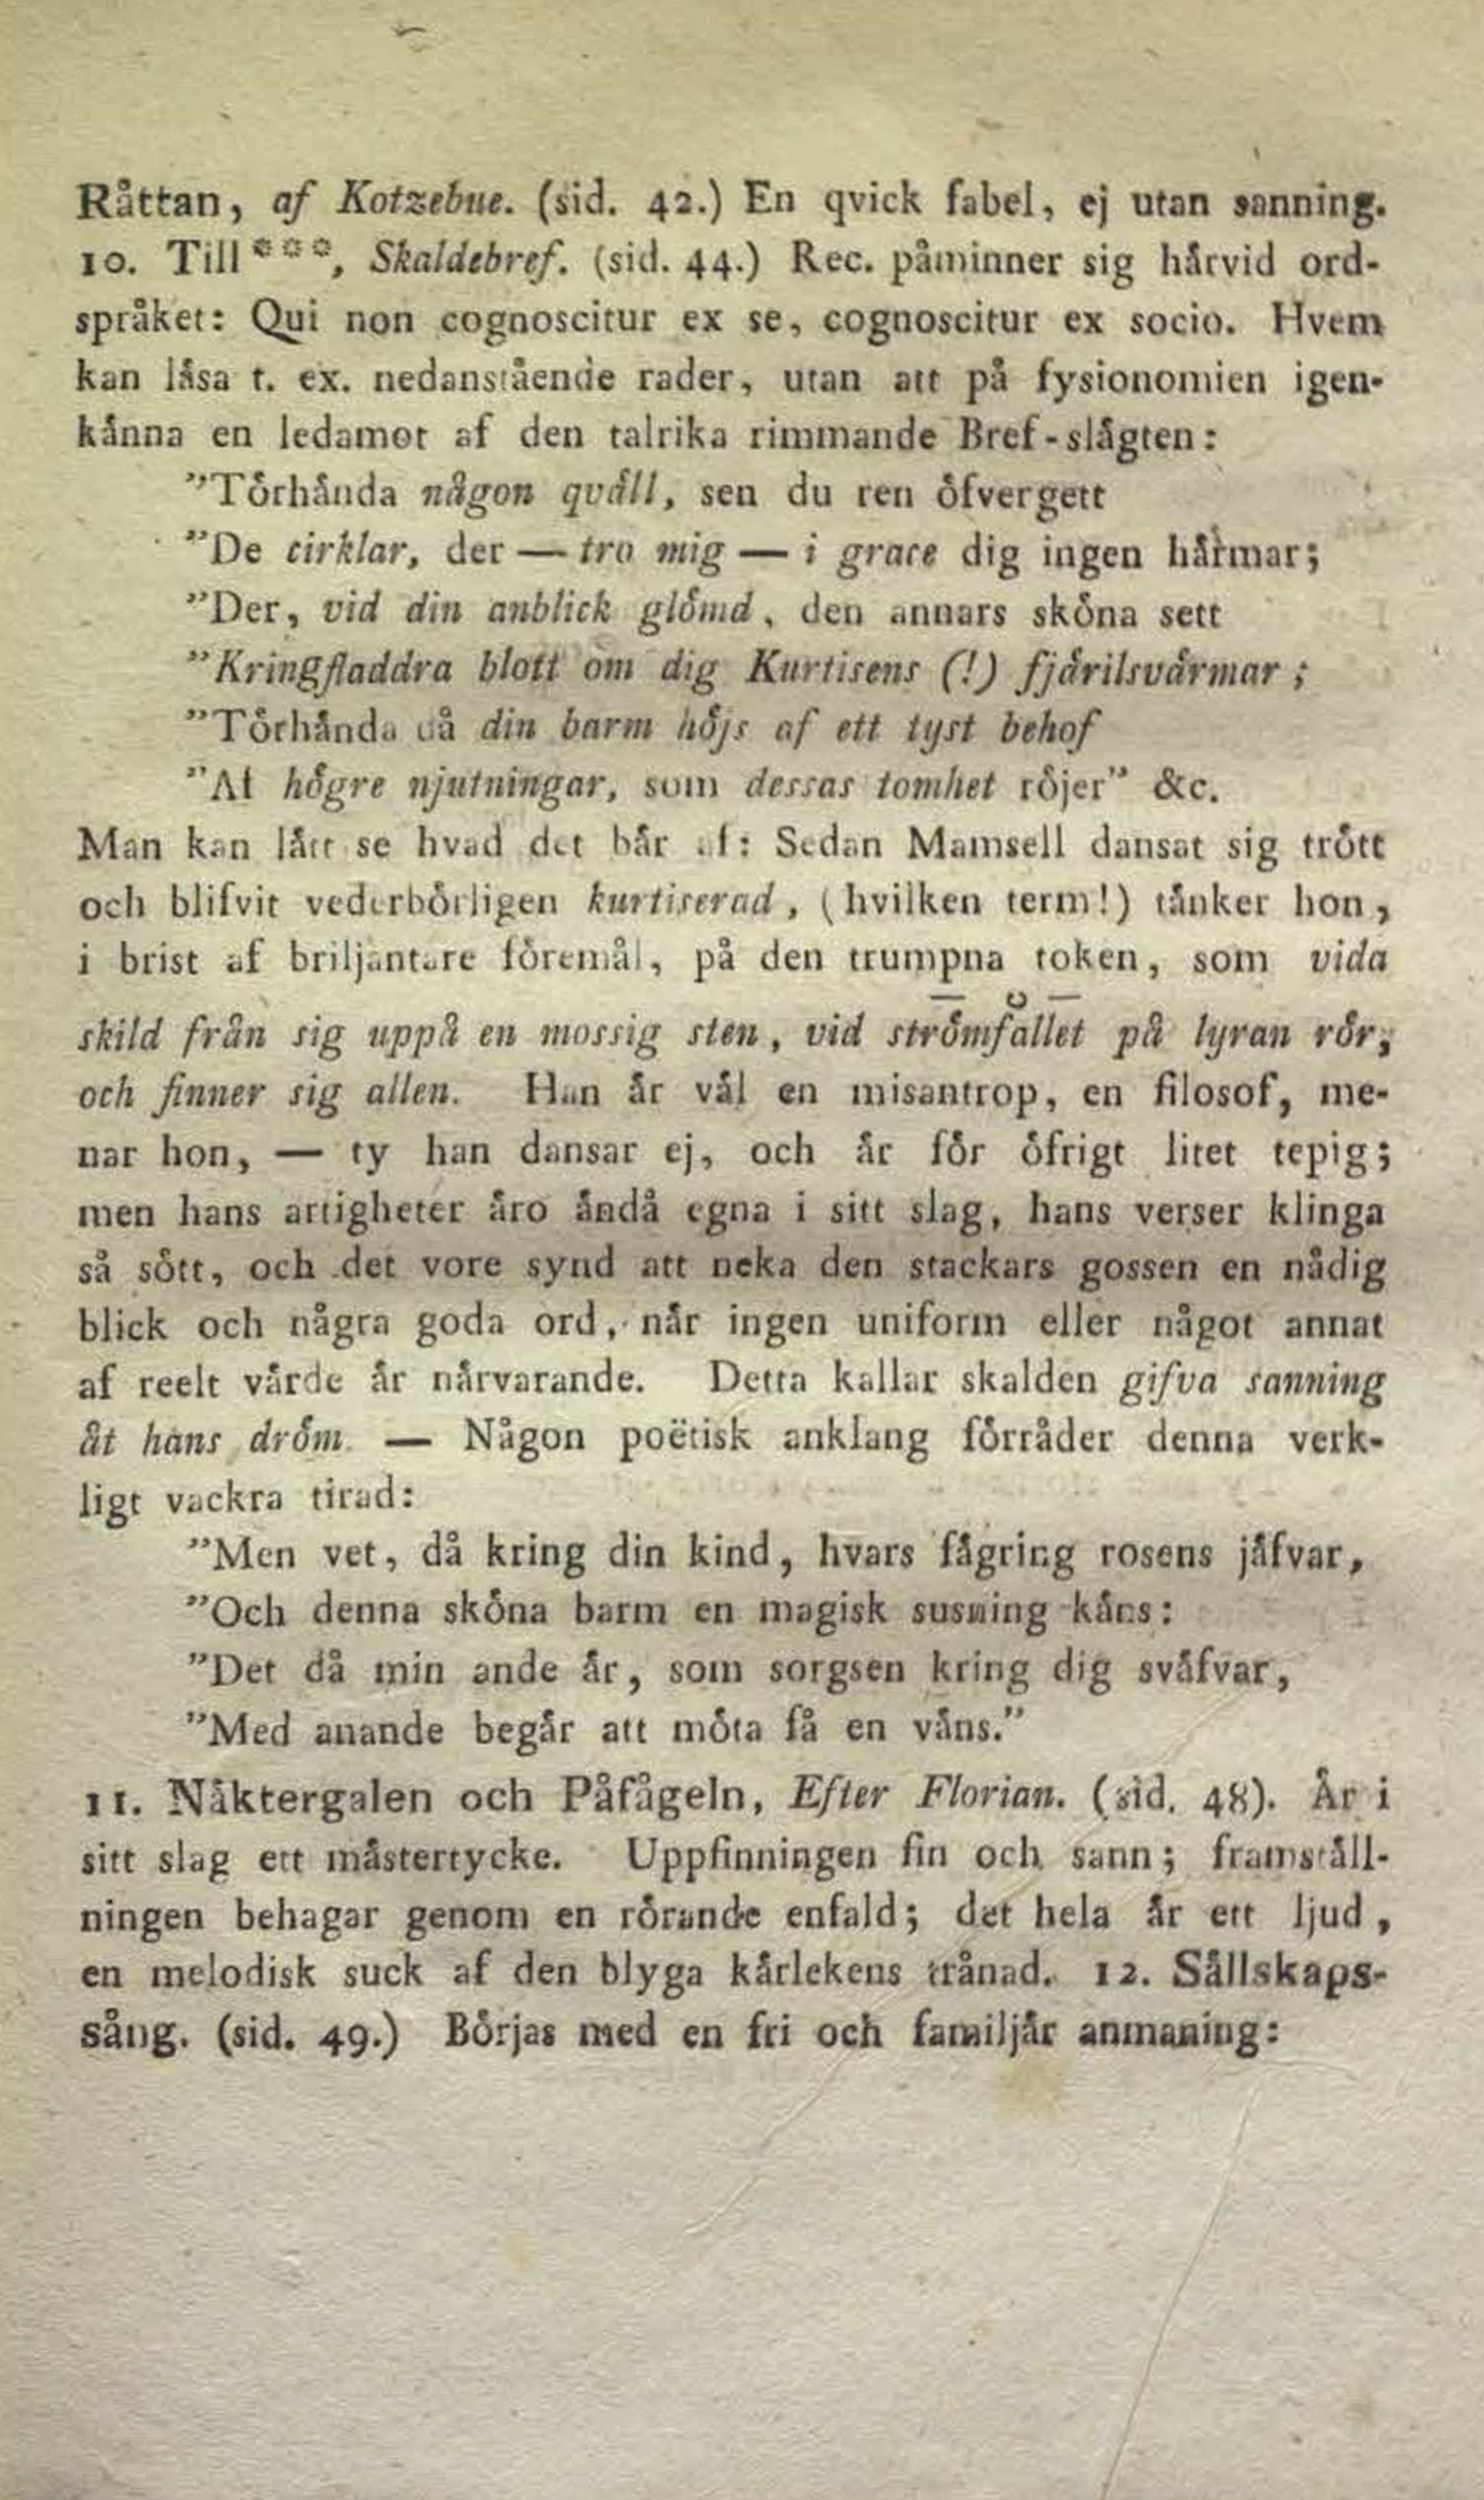 Råttan, af Kotzebue. (sid. 42.) En qvick fabel, ej utan sanning.
10. Till ***, Skaldebref. (sid. 44.) Rec. påminner sig härvid ord-
språket: Qui non cognoscitur ex se, cognoscitur ex socio. Hvem
kan läsa t. ex. nedanstående rader, utan att på fysionomien igen-
känna en ledamot af den talrika rimmande Bref-slägten:
”Törhända någon qväll, sen du ren öfvergett
”De cirklar, der — tro mig — i grace dig ingen härmar;
”Der, vid din anblick glömd, den annars sköna sett
”Kringfladdra blott om dig Kurtisens (!) fjärilsvärmar;
”Törhända då din barm höjs af ett tyst behof
”Af högre njutningar, som dessas tomhet röjer” &c.
Man kan lätt se hvad det bär af: Sedan Mamsell dansat sig trött
och blifvit vederbörligen kurtiserad, (hvilken term!) tänker hon,
i brist af briljantare föremål, på den trumpna token, som vida
skild från sig uppå en mossig sten, vid strömfallet på lyran rör,
och finner sig allen. Han är väl en misantrop, en filosof, me-
nar hon, — ty han dansar ej, och är för öfrigt litet tepig;
men hans artigheter äro ändå egna i sitt slag, hans verser klinga
så sött, och det vore synd att neka den stackars gossen en nådig
blick och några goda ord, när ingen uniform eller något annat
af reelt värde är närvarande. Detta kallar skalden gifva sanning
åt hans dröm. — Någon poëtisk anklang förråder denna verk-
ligt vackra tirad:
”Men vet, då kring din kind, hvars fägring rosens jäfvar,
”Och denna sköna barm en magisk susning käns:
”Det då min ande är, som sorgsen kring dig sväfvar,
”Med anande begär att möta få en väns.”
11. Näktergalen och Påfågeln, Efter Florian. (sid. 48). Är i
sitt slag ett mästertycke. Uppfinningen fin och sann; framställ-
ningen behagar genom en rörande enfald; det hela är ett ljud,
en melodisk suck af den blyga kärlekens trånad. 12. Sällskaps-
sång. (sid. 49.) Börjas med en fri och familjär anmaning: